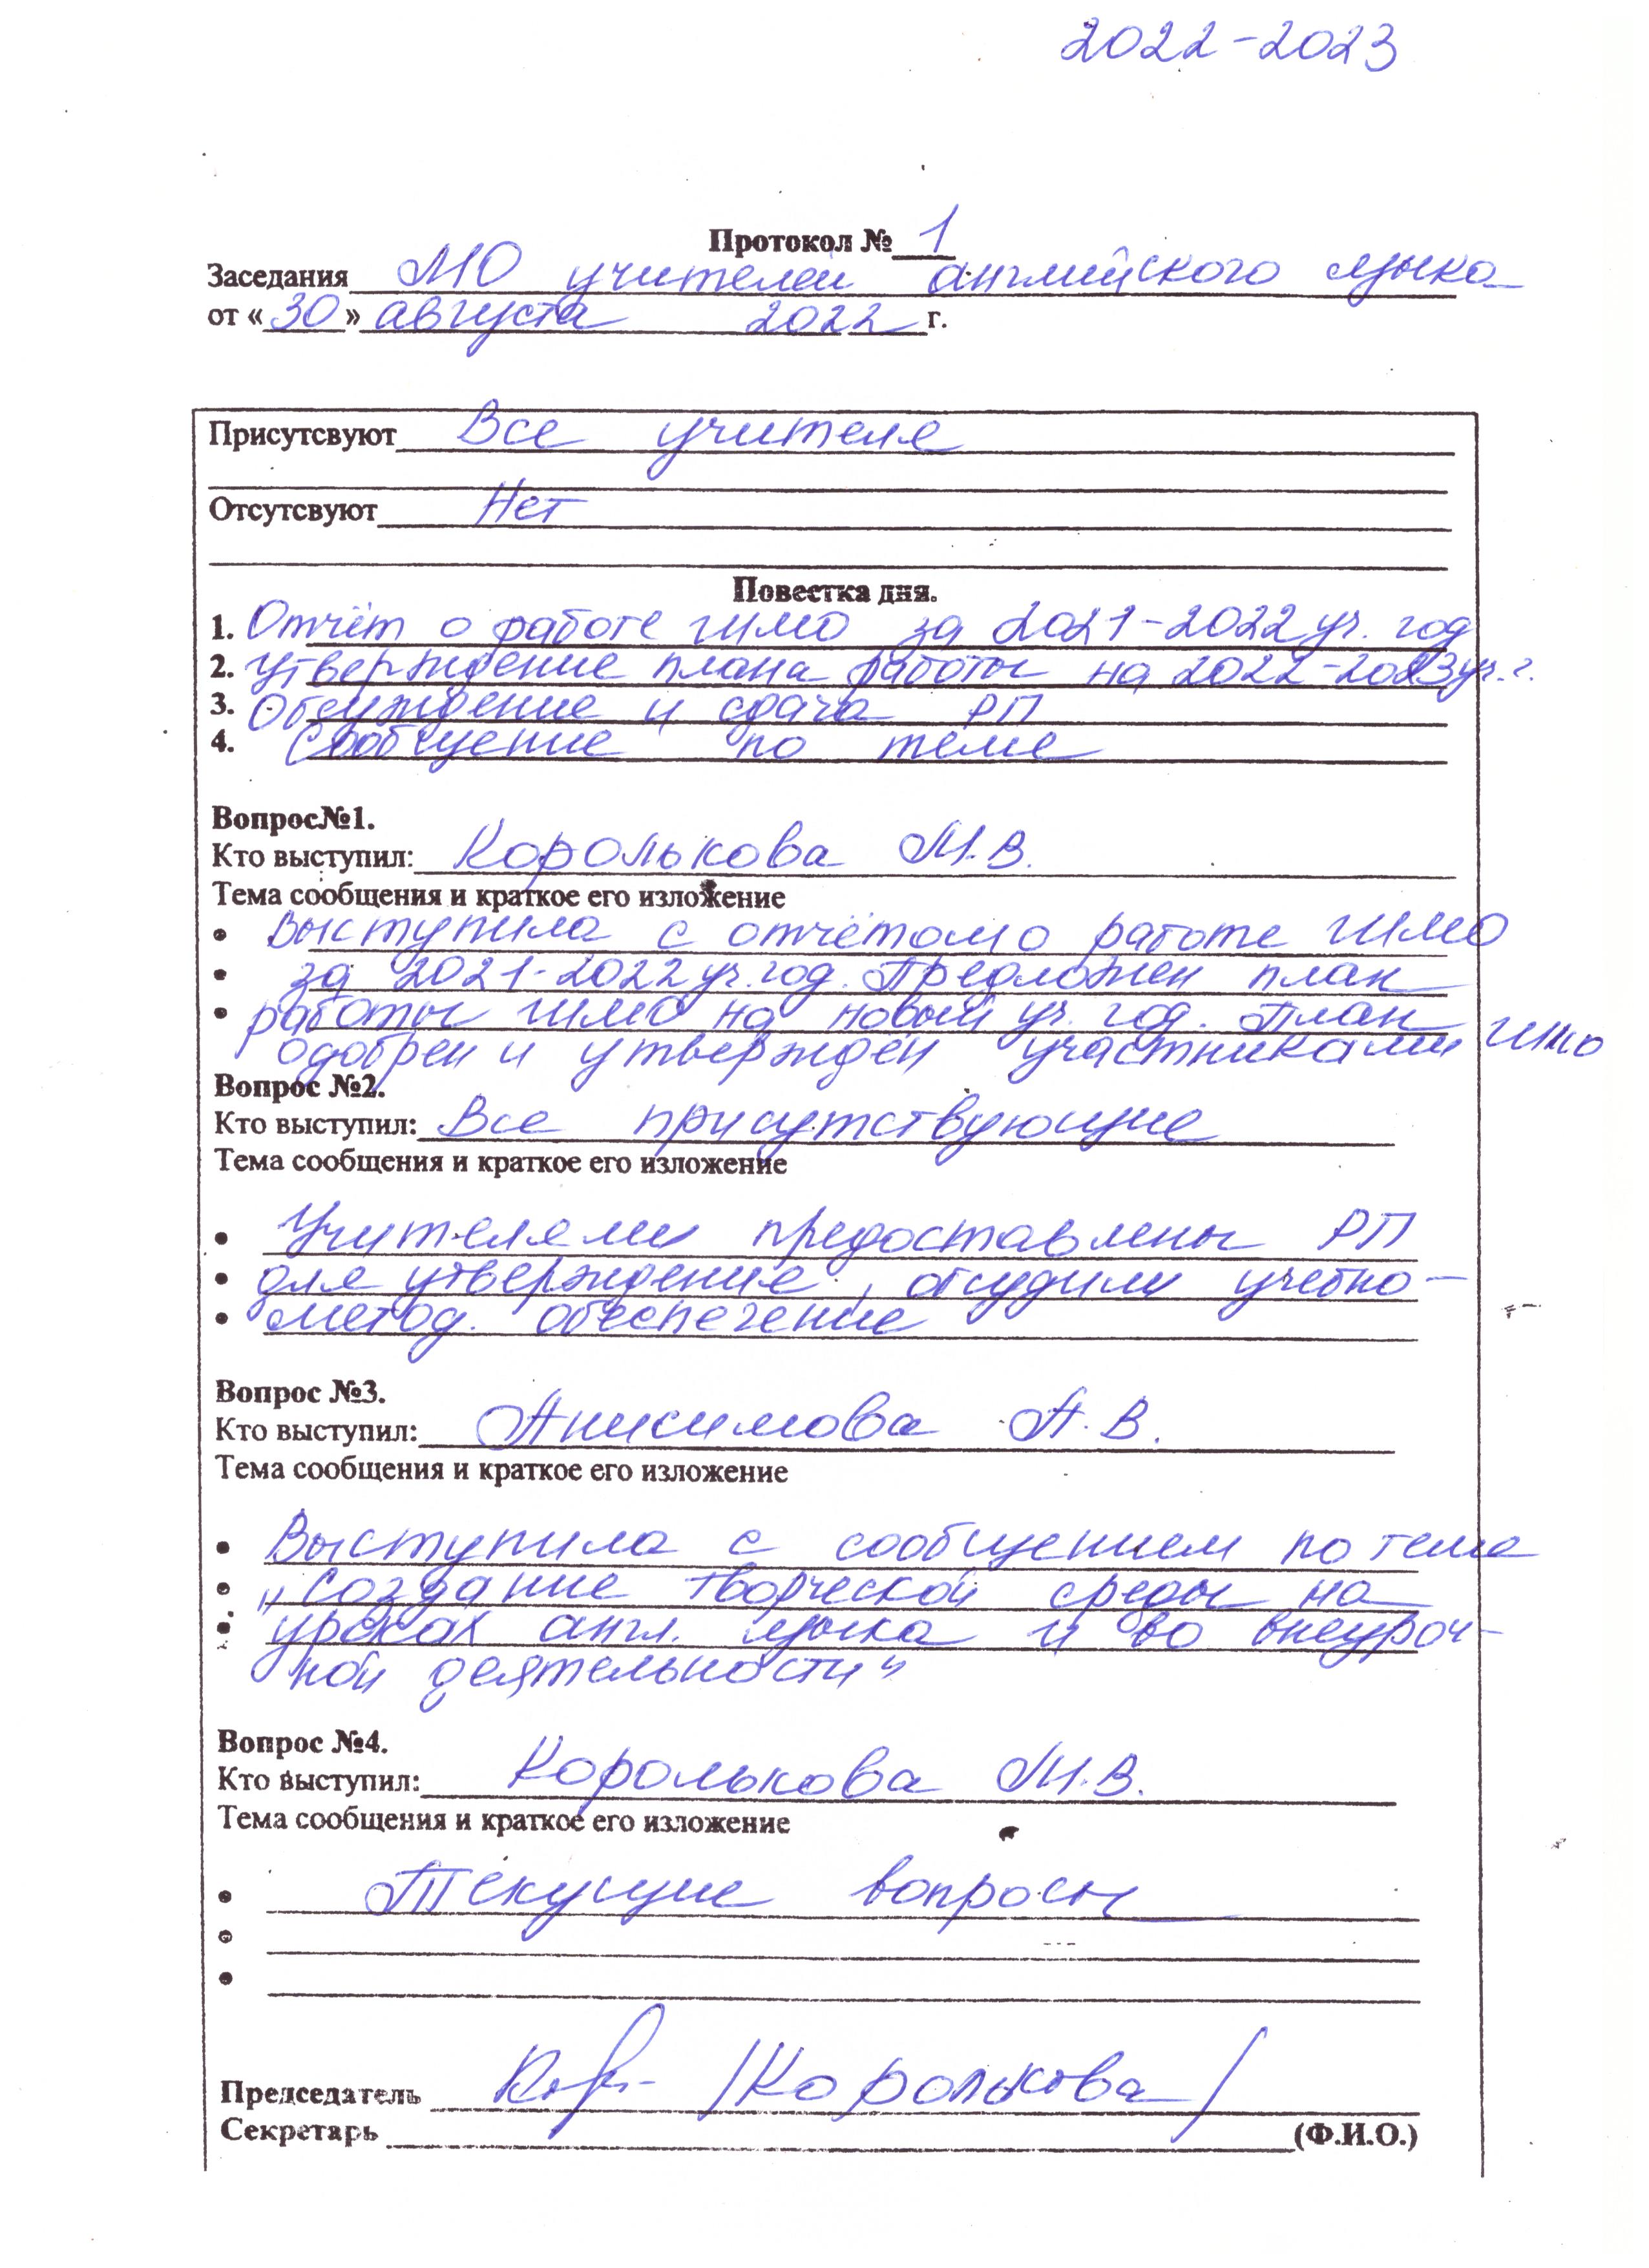 2022-2023
Протокол № 1
Заседания МО учителей английского языка
от «30» августа 2022 г.
Присутсвуют Все учителя
Отсутсвуют Нет
Повестка дня.
1. Отчёт о работе ШМО за 2021-2022 уч. год
2. Утверждение плана работы на 2022-2023 уч. г.
3. Обсуждение и сдача РП
4. Сообщение по теме
Вопрос№1.
Кто выступил: Королькова М.В.
Тема сообщения и краткое его изложение
• Выступила с отчётом о работе ШМО
• за 2021-2022 уч. год. Предложен план
• работы ШМО на новый уч. год. План
одобрен и утвержден участниками ШМО
Вопрос №2.
Кто выступил: Все присутствующие
Тема сообщения и краткое его изложение
• Учителями предоставлены РП
• для утверждение, обсудили учебно-
• метод. обеспечение
Вопрос №3.
Кто выступил: Анисимова А.В.
Тема сообщения и краткое его изложение
• Выступила с сообщением по теме
• „Создание творческой среды на
• уроках англ. языка и во внеуроч-
ной деятельности"
Вопрос №4.
Кто выступил: Королькова М.В.
Тема сообщения и краткое его изложение
• Текущие вопросы
•
•
Председатель /Королькова/
Секретарь (Ф.И.О.)